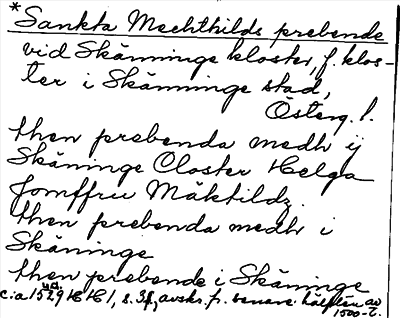 *Sankta Mechthilds prebende
vid Skänninge kloster, f. klos-
ter i Skänninge stad,
Österg. l.
then prebenda medh ij
Skäninge Closter Helga
Jomffru Mäktildz.
then prebenda medh i
Skäninge
then prebende i Skäninge
c:a 1529 HH 1, s. 31, avskr. fr. senare hälften av
1500-t.